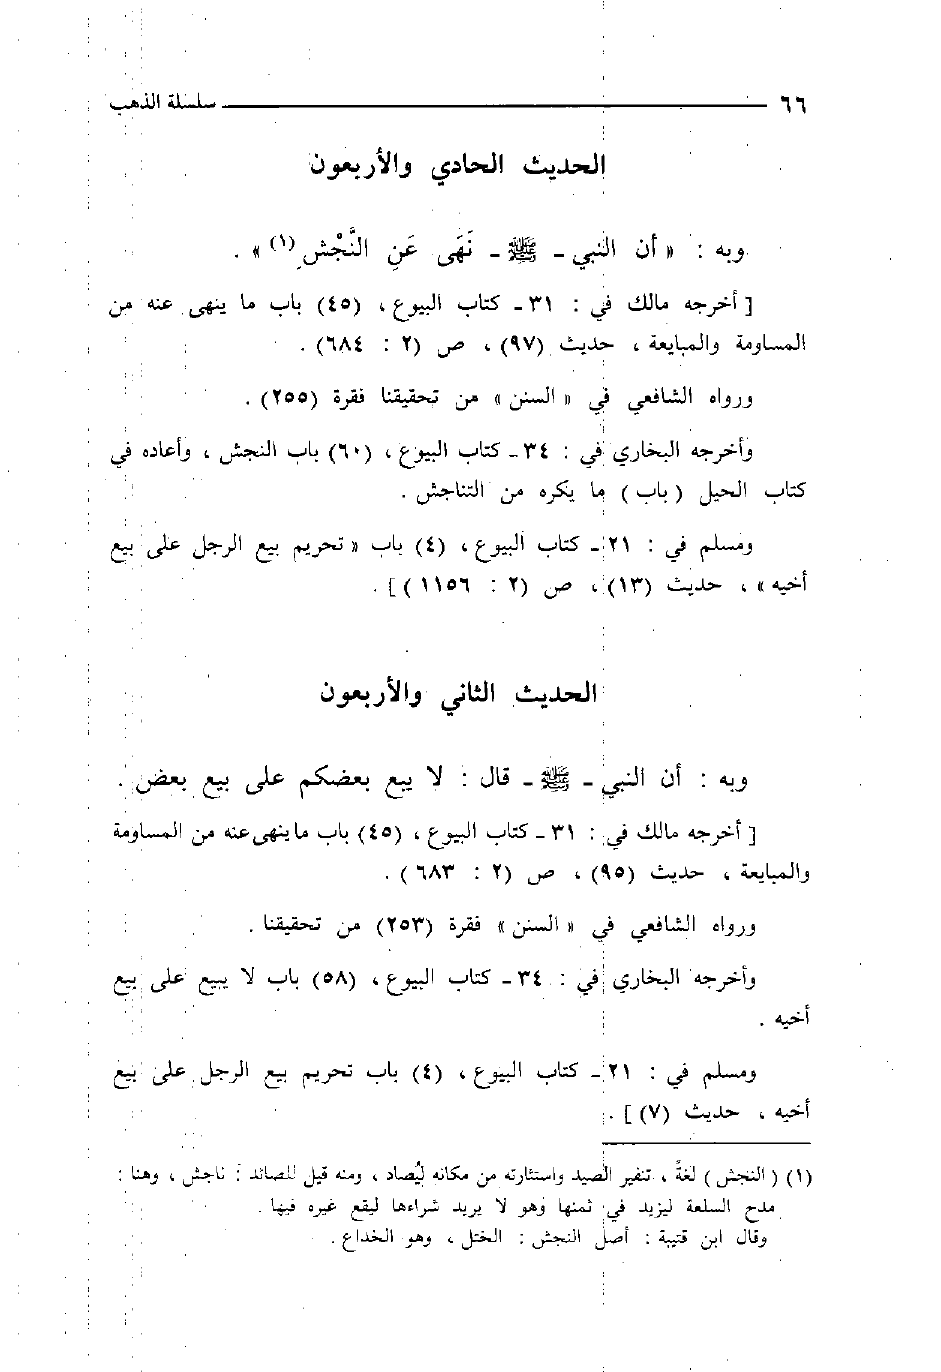 ٦٦ سلسلة الذهب
الحديث الحادي والأربعون
وبه : « أن النبي ـ ﷺ ـ نَهَى عَنِ النَّجْشِ(١) » .
[ أخرجه مالك في : ٣١ـ كتاب البيوع ، (٤٥) باب ما ينهى عنه من
المساومة والمبايعة ، حديث (٩٧) ، ص (٢ : ٦٨٤) .
ورواه الشافعي في « السنن » من تحقيقنا فقرة (٢٥٥) .
وأخرجه البخاري في : ٣٤ـ كتاب البيوع ، (٦٠) باب النجش ، وأعاده في
كتاب الحيل ( باب ) ما يكره من التناجش .
ومسلم في : ٢١ـ كتاب البيوع ، (٤) باب « تحريم بيع الرجل على بيع
أخيه » ، حديث (١٣) ، ص (٢ : ١١٥٦ ) ] .
الحديث الثاني والأربعون
وبه : أن النبي ـ ﷺ ـ قال : لا يبع بعضكم على بيع بعض .
[ أخرجه مالك في : ٣١ـ كتاب البيوع ، (٤٥) باب ما ينهى عنه من المساومة
والمبايعة ، حديث (٩٥) ، ص (٢ : ٦٨٣ ) .
ورواه الشافعي في « السنن » فقرة (٢٥٣) من تحقيقنا .
وأخرجه البخاري في : ٣٤ـ كتاب البيوع ، (٥٨) باب لا يبيع على بيع
أخيه .
ومسلم في : ٢١ـ كتاب البيوع ، (٤) باب تحريم بيع الرجل على بيع
أخيه ، حديث (٧) ] .
(١) ( النجش ) لغةً ، تنفير الصيد واستثارته من مكانه لِيُصاد ، ومنه قيل للصائد : ناجش ، وهنا :
مدح السلعة ليزيد في ثمنها وهو لا يريد شراءها ليقع غيره فيها .
وقال ابن قتيبة : أصل النجش : الختل ، وهو الخداع .